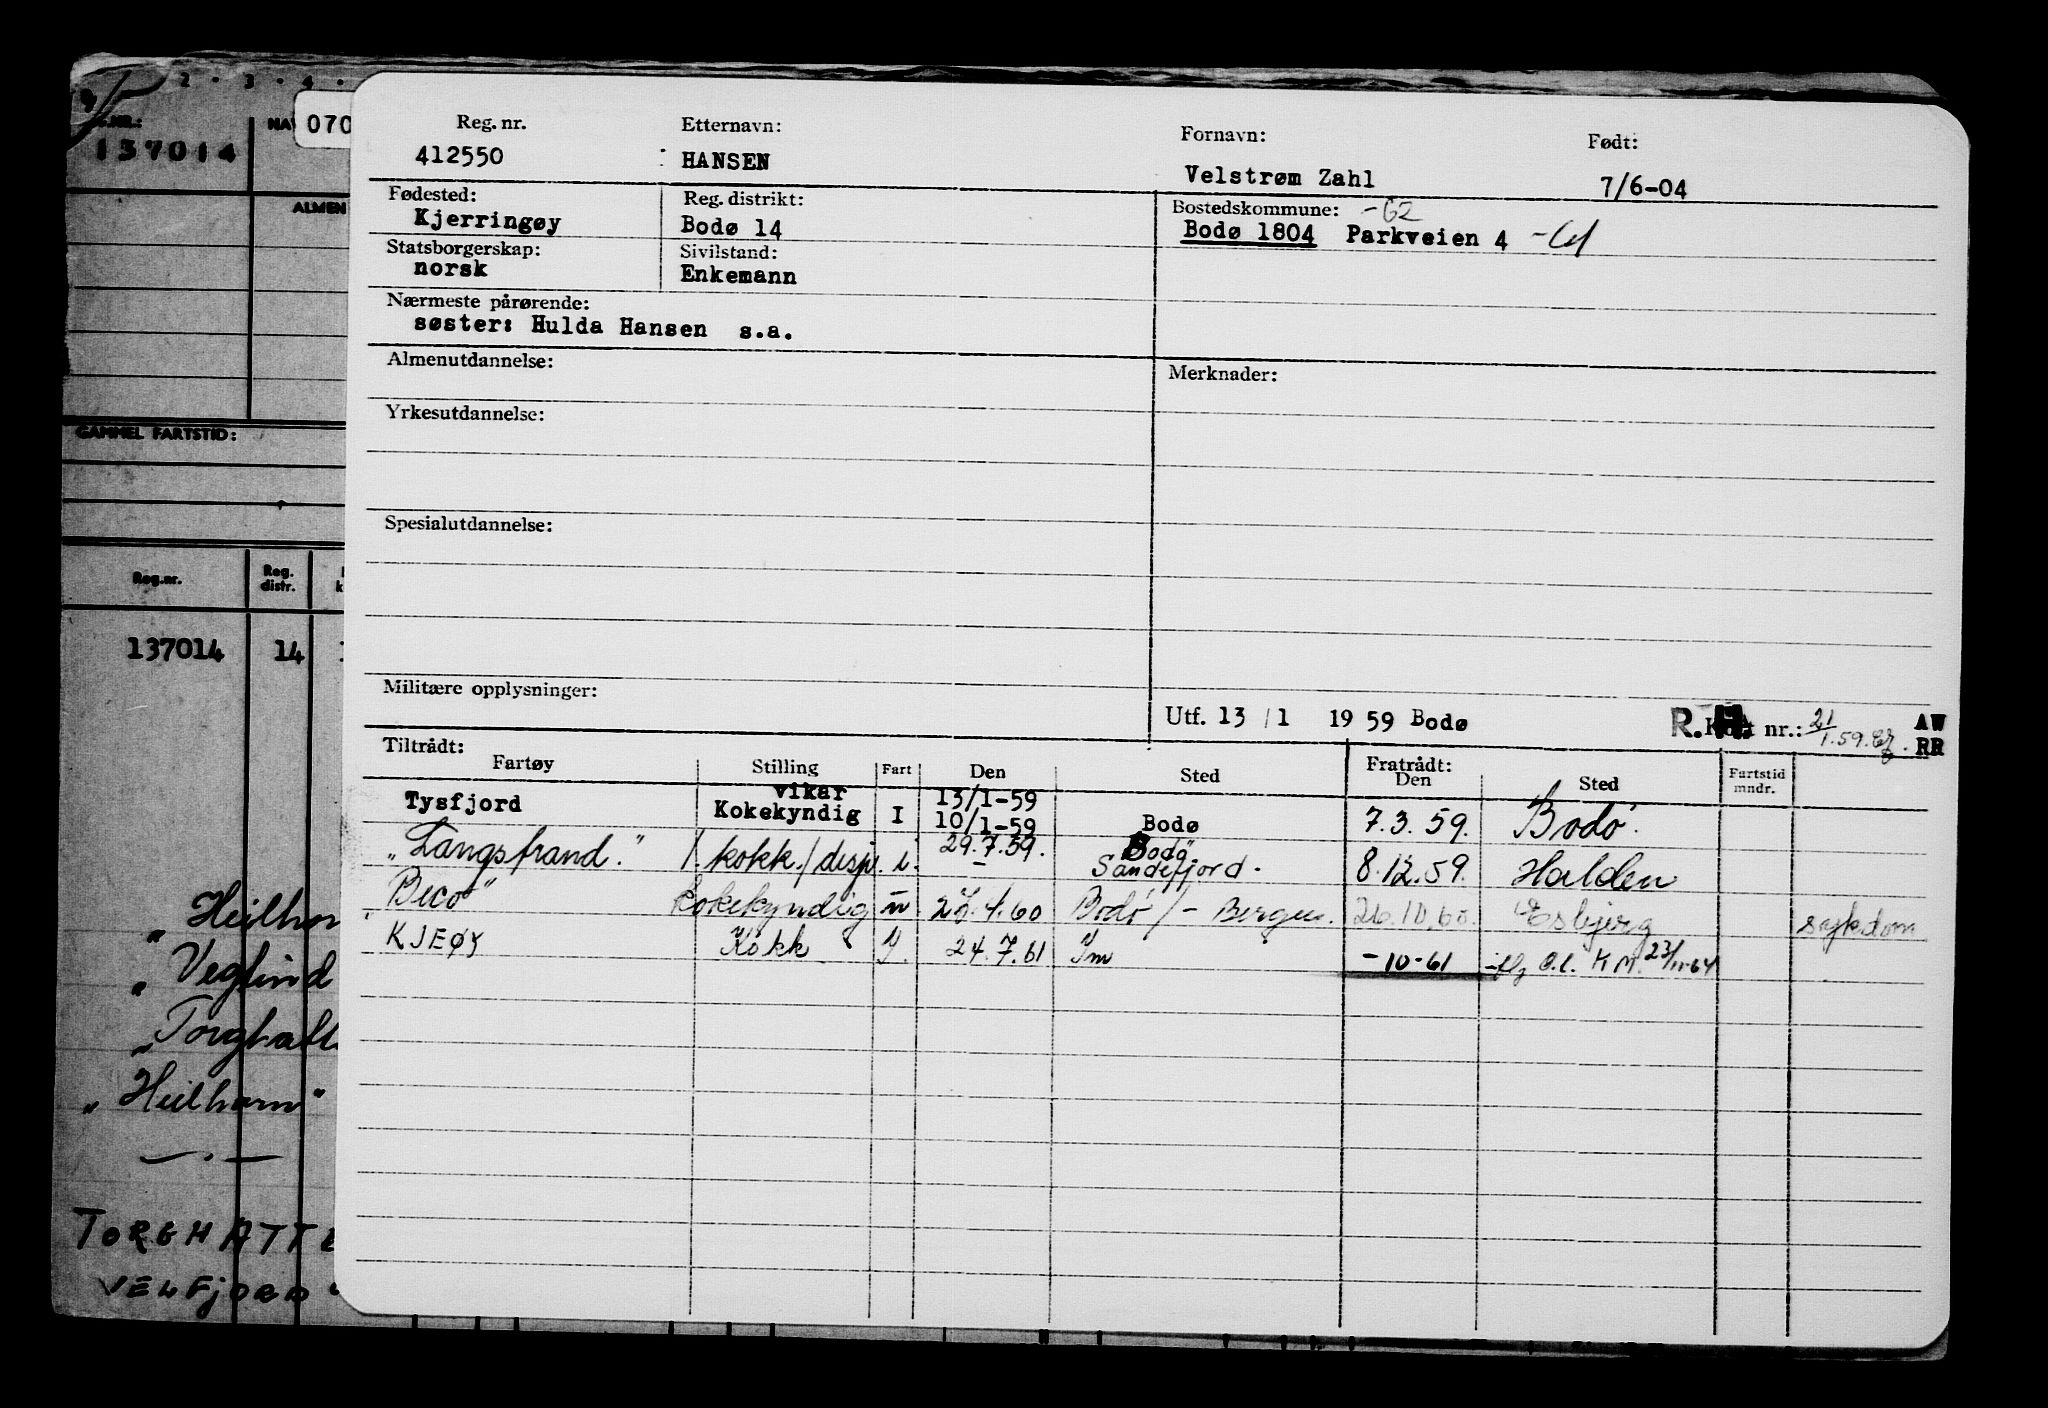 2 · 3 · 4 ·
137014
NAV
070
ALMEN
GAMMEL FARTSTID:
Reg.nr. Reg. distr.
137014 14
„Heilhor
„Veglind
„Torghatt
„Heilhorn"
— · —
TORGHATTE
VELFJORD "
Reg. nr. Etternavn: Fornavn: Født:
412550 HANSEN Velstrøm Zahl 7/6-04
Fødested: Reg. distrikt: Bostedskommune: -62
Kjerringøy Bodø 14 Bodø 1804 Parkveien 4 -61
Statsborgerskap: Sivilstand:
norsk Enkemann
Nærmeste pårørende:
søster: Hulda Hansen s.a.
Almenutdannelse: Merknader:
Yrkesutdannelse:
Spesialutdannelse:
Militære opplysninger:
Utf. 13 / 1 19 59 Bodø R.H. Kort nr.: 21/1.59. AW
RR
Tiltrådt: Fratrådt:
Fartøy Stilling Fart Den Sted Den Sted Fartstid mndr.
Tysfjord vikar Kokekyndig I 13/1-59 10/1-59 Bodø 7.3.59. Bodø.
„Langstrand." 1. kokk./ i. 29.7.59. — Bodø Sandefjord. 8.12.59. Halden
"Beco" Kokekyndig u 2 .4.60 Bodø /- Bergen. 26.10.60. Esbjerg sykdom
KJEØY Kokk 24.7.61 -10-61 K M. 23/11-64